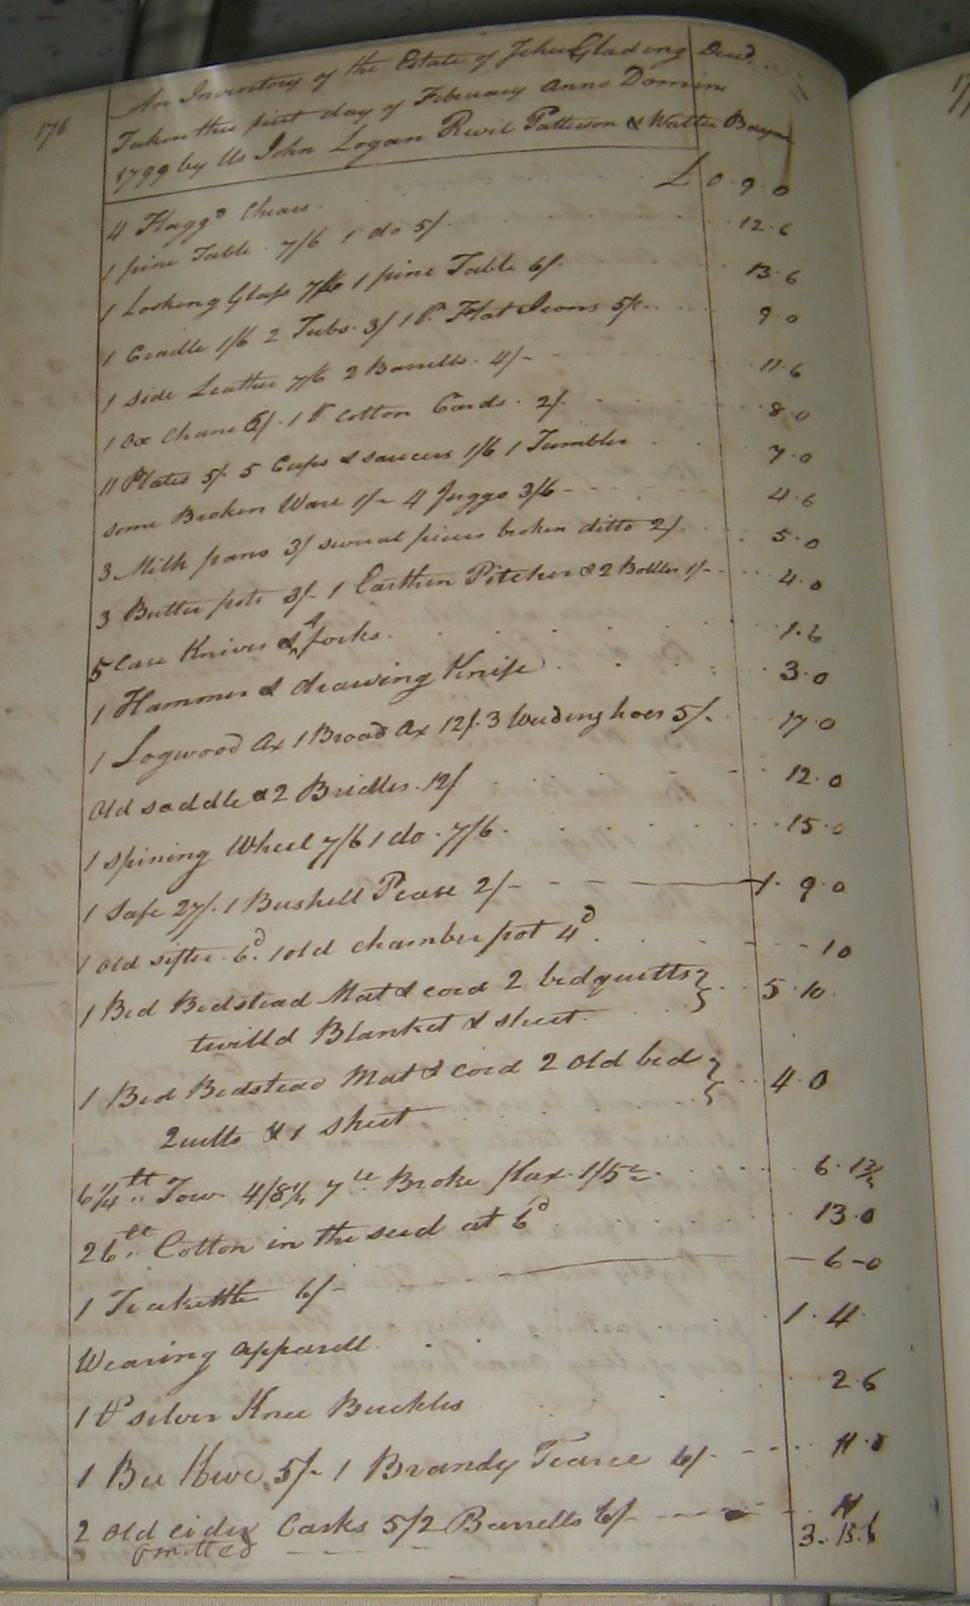 176
An Inventory of the Estate of John Glading Decd.
Taken this first day of February Anno Domini
1799 by Us John Logan Revil Patterson & Walter Bayne
4 Flagg'd Chears £ 0.9.0
1 pine Table 7/6 1 do 5/. 12.6
1 Looking Glass 7/6 1 pine Table 6/. 13.6
1 Cradle 1/6 2 Tubs 3/ 1 Pr. Flat Irons 5/- 9.0
1 side Leather 7/6 2 Barrells. 4/- 11.6
1 Ox Chane 6/. 1 Pr Cotton Cards. 2/. 8.0
11 Plates 5/. 5 Cups & saucers 1/6 1 Tumbler 7.0
some Broken Ware 1/- 4 Juggs 3/6 - 4.6
3 Milk pans 3/ several pieces broken ditto 2/. 5.0
3 Butter pots 3/- 1 Earthen Pitcher & 2 Bottles 1/- 4.0
5 Case Knives & 4 forks. 1.6
1 Hammer & drawing Knife 3.0
1 Logwood Ax 1 Broad Ax 12/. 3 Weeding hoes 5/. 17.0
Old saddle & 2 Bridles. 12/ 12.0
1 spining Wheel 7/6 1 do. 7/6. 15.0
1 Safe 27/. 1 Bushell Pease 2/- 1. 9.0
1 old sifter. 6d. 1 old chamber pot 4d. 10
1 Bed Bedstead Mat & cord 2 bedquilts 5.10
twilld Blanket & sheet
1 Bed Bedstead Mat & cord 2 old bed 4.0
Quilts & 1 sheet
6 1/4 lb Tow 4/8 1/4 7 lb Broke flax 1/5 6.1
26 lb Cotton in the seed at 6d 13.0
1 Teakettle 6/- - 6 - 0
Wearing apparell 1.4
1 Pr silver Knee Buckles 2.6
1 Bee Hive 5/- 1 Brandy Tearce 6/- 11.0
2 old cider Casks 5/ 2 Barrells 6/- 11
omitted 3.15.6